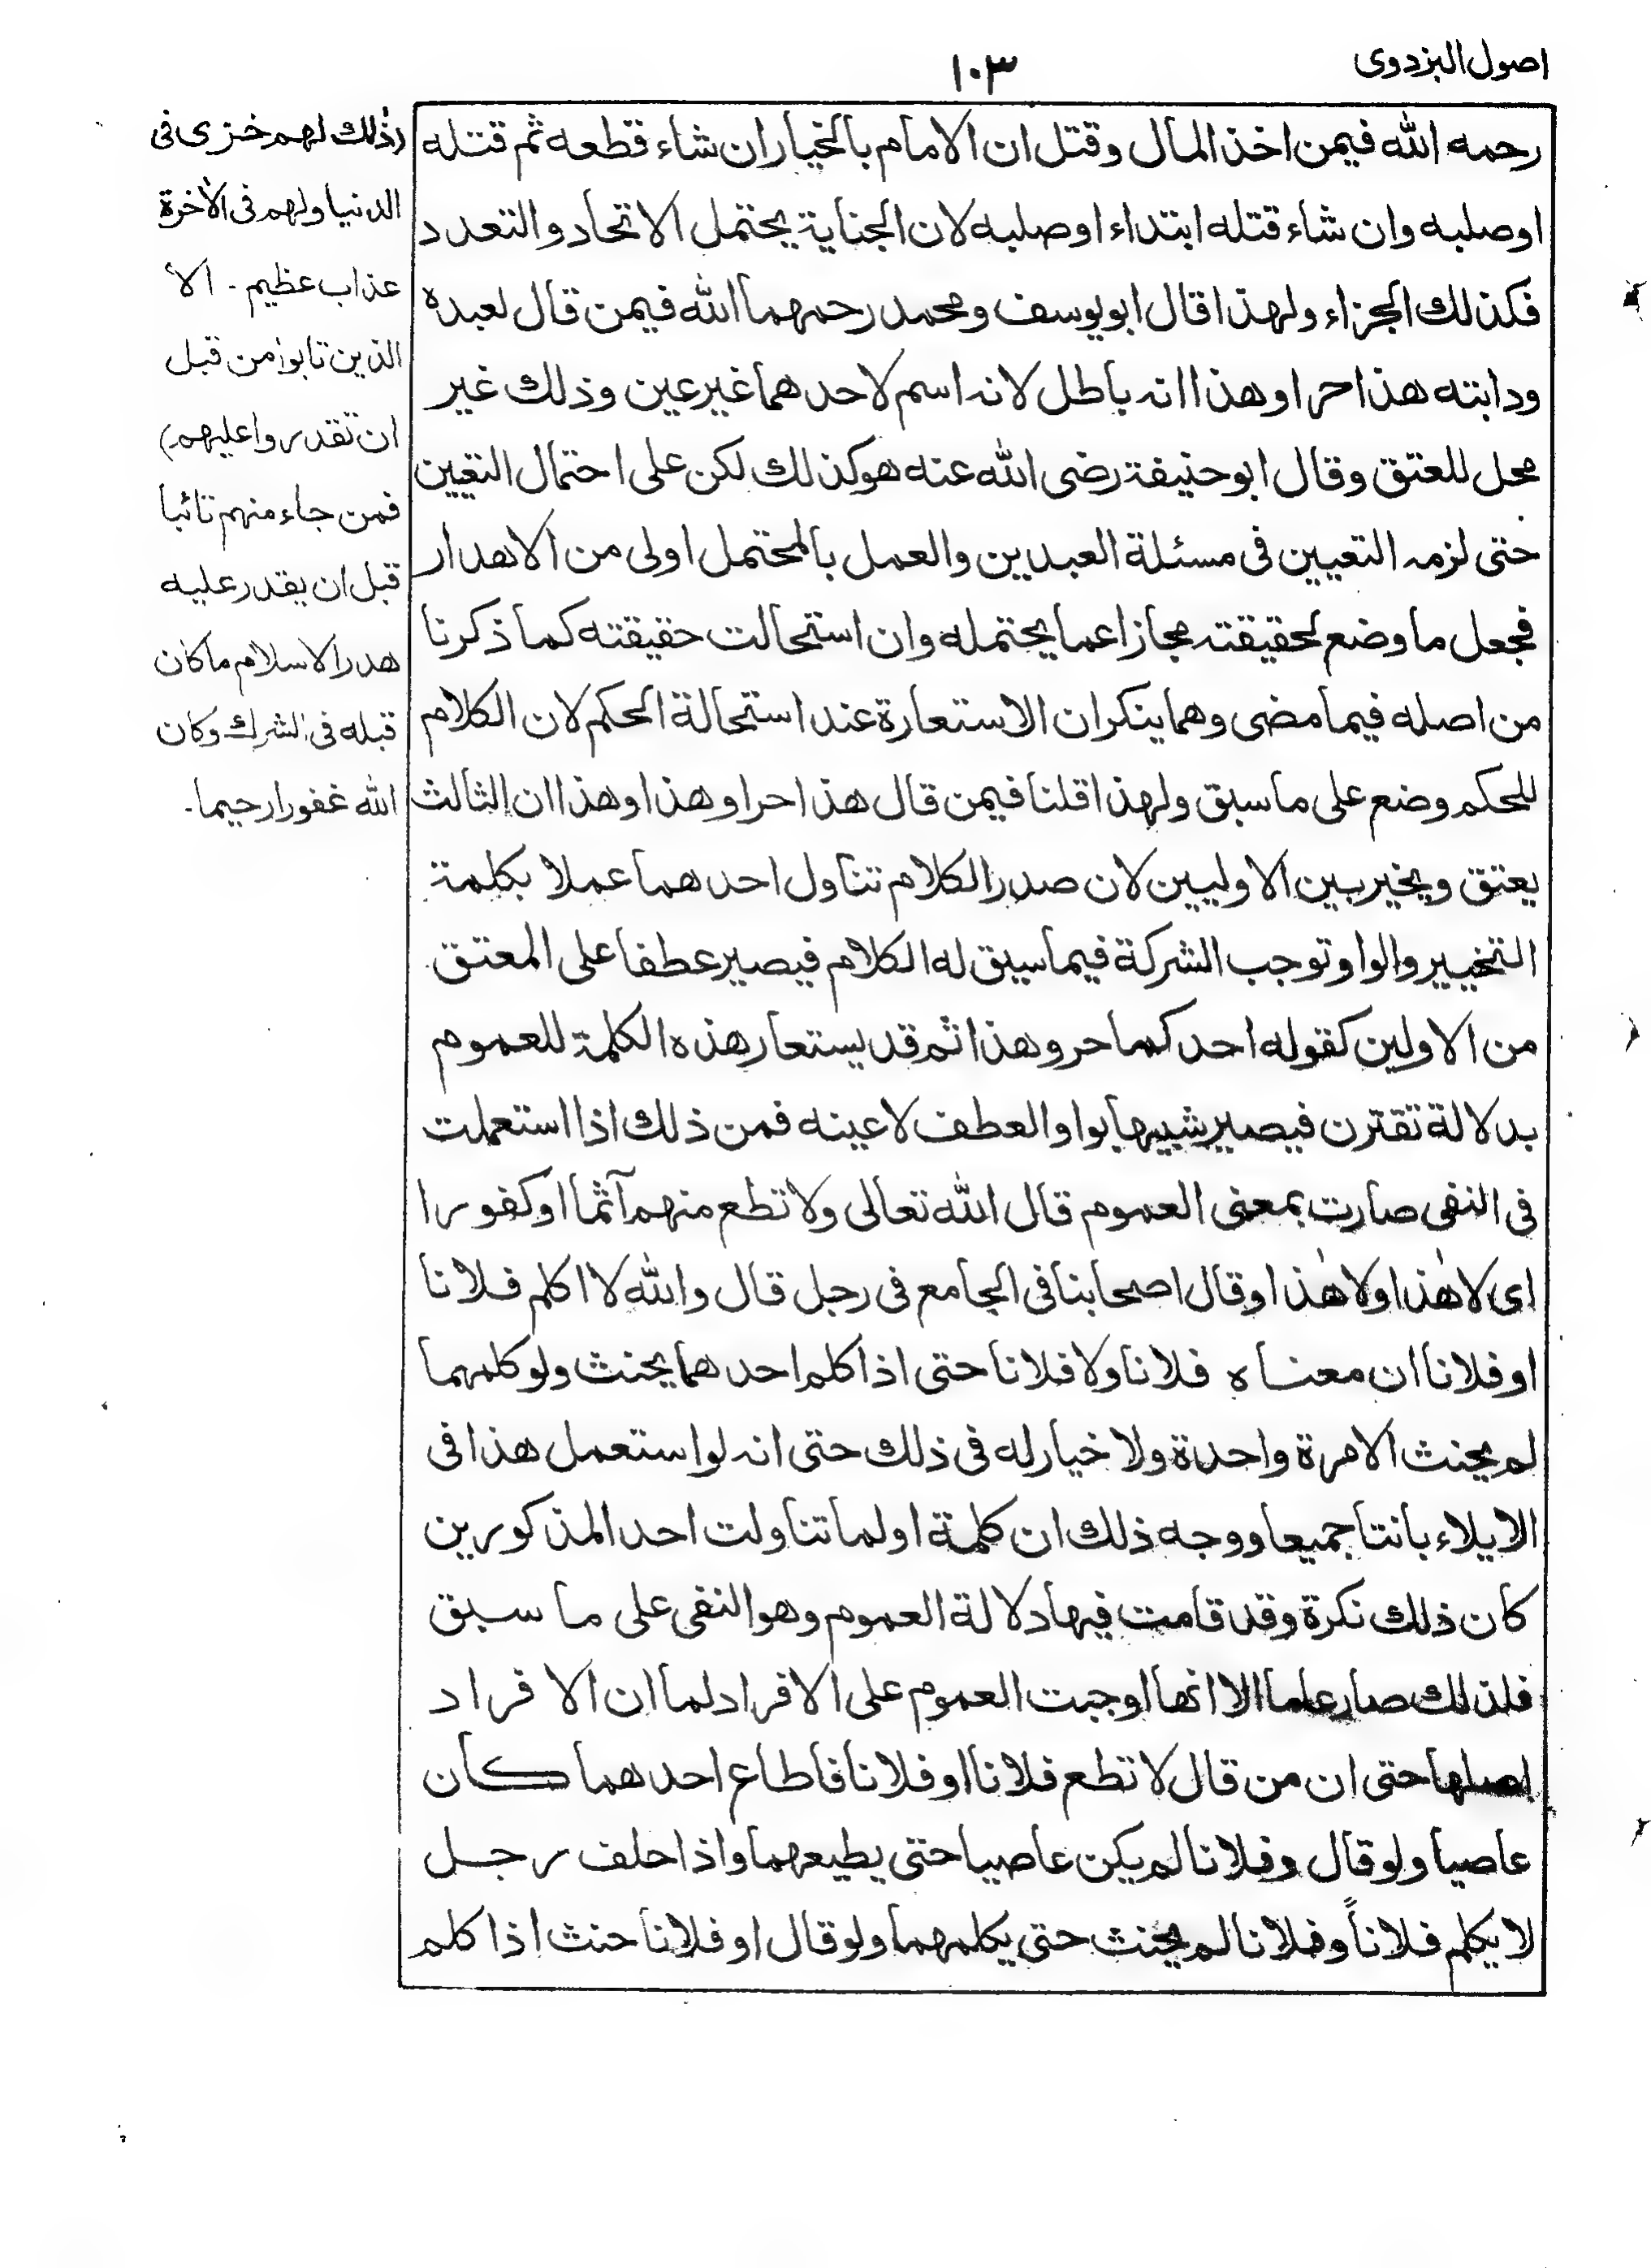 اصول البزدوى
١٠٣
رحمه الله فيمن اخذ المال وقتل ان الامام بالخيار ان شاء قطعه ثم قتله
او صلبه وان شاء قتله ابتداء او صلبه لان الجناية يحتمل الاتحاد والتعدد
فكذلك الجزاء ولهذا قال ابو يوسف ومحمد رحمهما الله فيمن قال لعبده
ودابته هذا حر او هذا انه باطل لانه اسم لاحدهما غير عين وذلك غير
محل للعتق وقال ابو حنيفة رضى الله عنه هو كذلك لكن على احتمال التعيين
حتى لزمه التعيين فى مسئلة العبدين والعمل بالمحتمل اولى من الاهدار
فجعل ما وضع لحقيقته مجازا عما يحتمله وان استحالت حقيقته كما ذكرنا
من اصله فيما مضى وهما ينكران الاستعارة عند استحالة الحكم لان الكلام
للحكم وضع على ما سبق ولهذا قلنا فيمن قال هذا حر او هذا وهذا ان الثالث
يعتق ويخير بين الاوليين لان صدر الكلام تناول احدهما عملا بكلمة
التخيير والواو توجب الشركة فيما سيق له الكلام فيصير عطفا على المعتق
من الاولين كقوله احد كما حر وهذا ثم قد يستعار هذه الكلمة للعموم
بدلالة تقترن فيصير شبيها بواو العطف لا عينه فمن ذلك اذا استعملت
فى النفى صارت بمعنى العموم قال الله تعالى ولا تطع منهم آثما او كفورا
اى لا هٰذا ولا هٰذا وقال اصحابنا فى الجامع فى رجل قال والله لا اكلم فلانا
او فلانا ان معناه فلانا ولا فلانا حتى اذا كلم احدهما يحنث ولو كلمهما
لم يحنث الا مرة واحدة ولا خيار له فى ذلك حتى انه لو استعمل هذا فى
الايلاء بانتا جميعا ووجه ذلك ان كلمة او لما تناولت احد المذكورين
كان ذلك نكرة وقد قامت فيها دلالة العموم وهو النفى على ما سبق
فلذلك صار عاما الا انها اوجبت العموم على الافراد لما ان الافراد
اصلها حتى ان من قال لا تطع فلانا او فلانا فاطاع احدهما كان
عاصيا ولو قال وفلانا لم يكن عاصيا حتى يطيعهما واذا حلف رجل
لا يكلم فلاناً وفلانا لم يحنث حتى يكلمهما ولو قال او فلانا حنث اذا كلم
(ذٰلك لهم خزى فى
الدنيا ولهم فى الاٰخرة
عذاب عظيم - الا
الذين تابوا من قبل
ان تقدروا عليهم)
فمن جاء منهم تائبا
قبل ان يقدر عليه
هدر الاسلام ما كان
قبله فى الشرك وكان
الله غفورا رحيما-